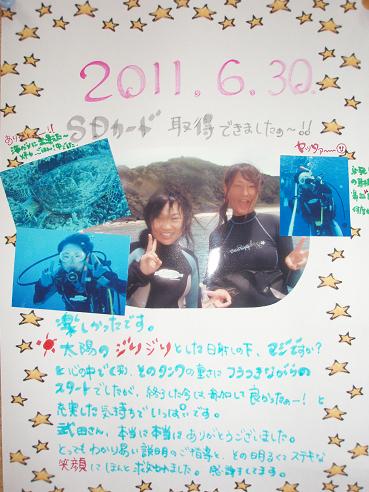 2011.6.30.
SDカード 取得できましたぁ〜!!
ヤッタァ〜!!
楽しかったです。
太陽のジリジリとした日射しの下、マジですか?
と心の中でくり、そのタンクの重さにフラつきながらの
スタートでしたが、終了した今は参加して良かったぁー!と
充実した気持ちでいっぱいです。
武田さん、本当に本当にありがとうございました。
とってもわかりやすい説明のご指導と、その明るくてステキな
笑顔にほんと救われました。感謝してます。